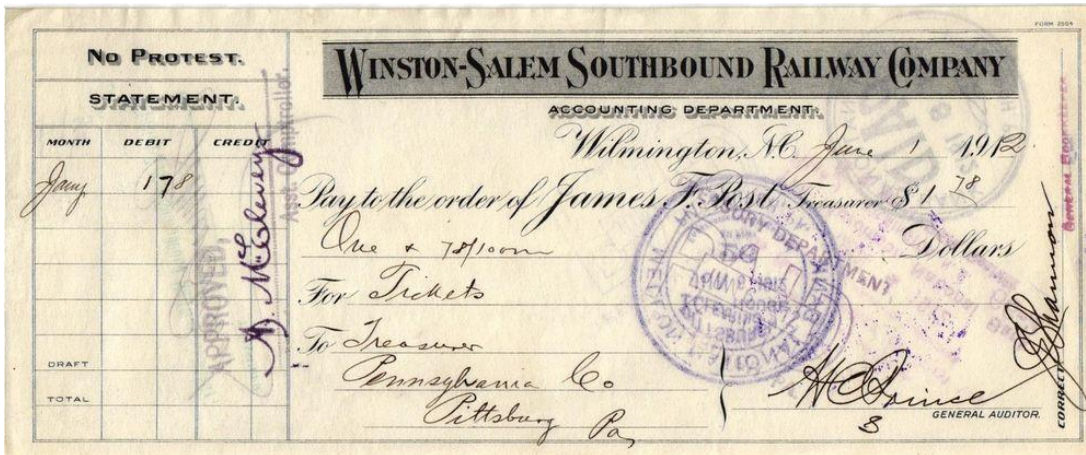 FORM 2504
NO PROTEST.
STATEMENT.
MONTH DEBIT CREDIT
Jany 1 78
DRAFT
TOTAL
APPROVED,
Asst. Comptroller.
WINSTON-SALEM SOUTHBOUND RAILWAY COMPANY
ACCOUNTING DEPARTMENT.
Wilmington, N.C. June 1 1912
Pay to the order of James F. Post Treasurer $ 1 78
One & 78/100 Dollars
For Tickets
To Treasurer
Pennsylvania Co
Pittsburg Pa
GENERAL AUDITOR.
CORRECT
GENERAL BOOKKEEPER
PAID